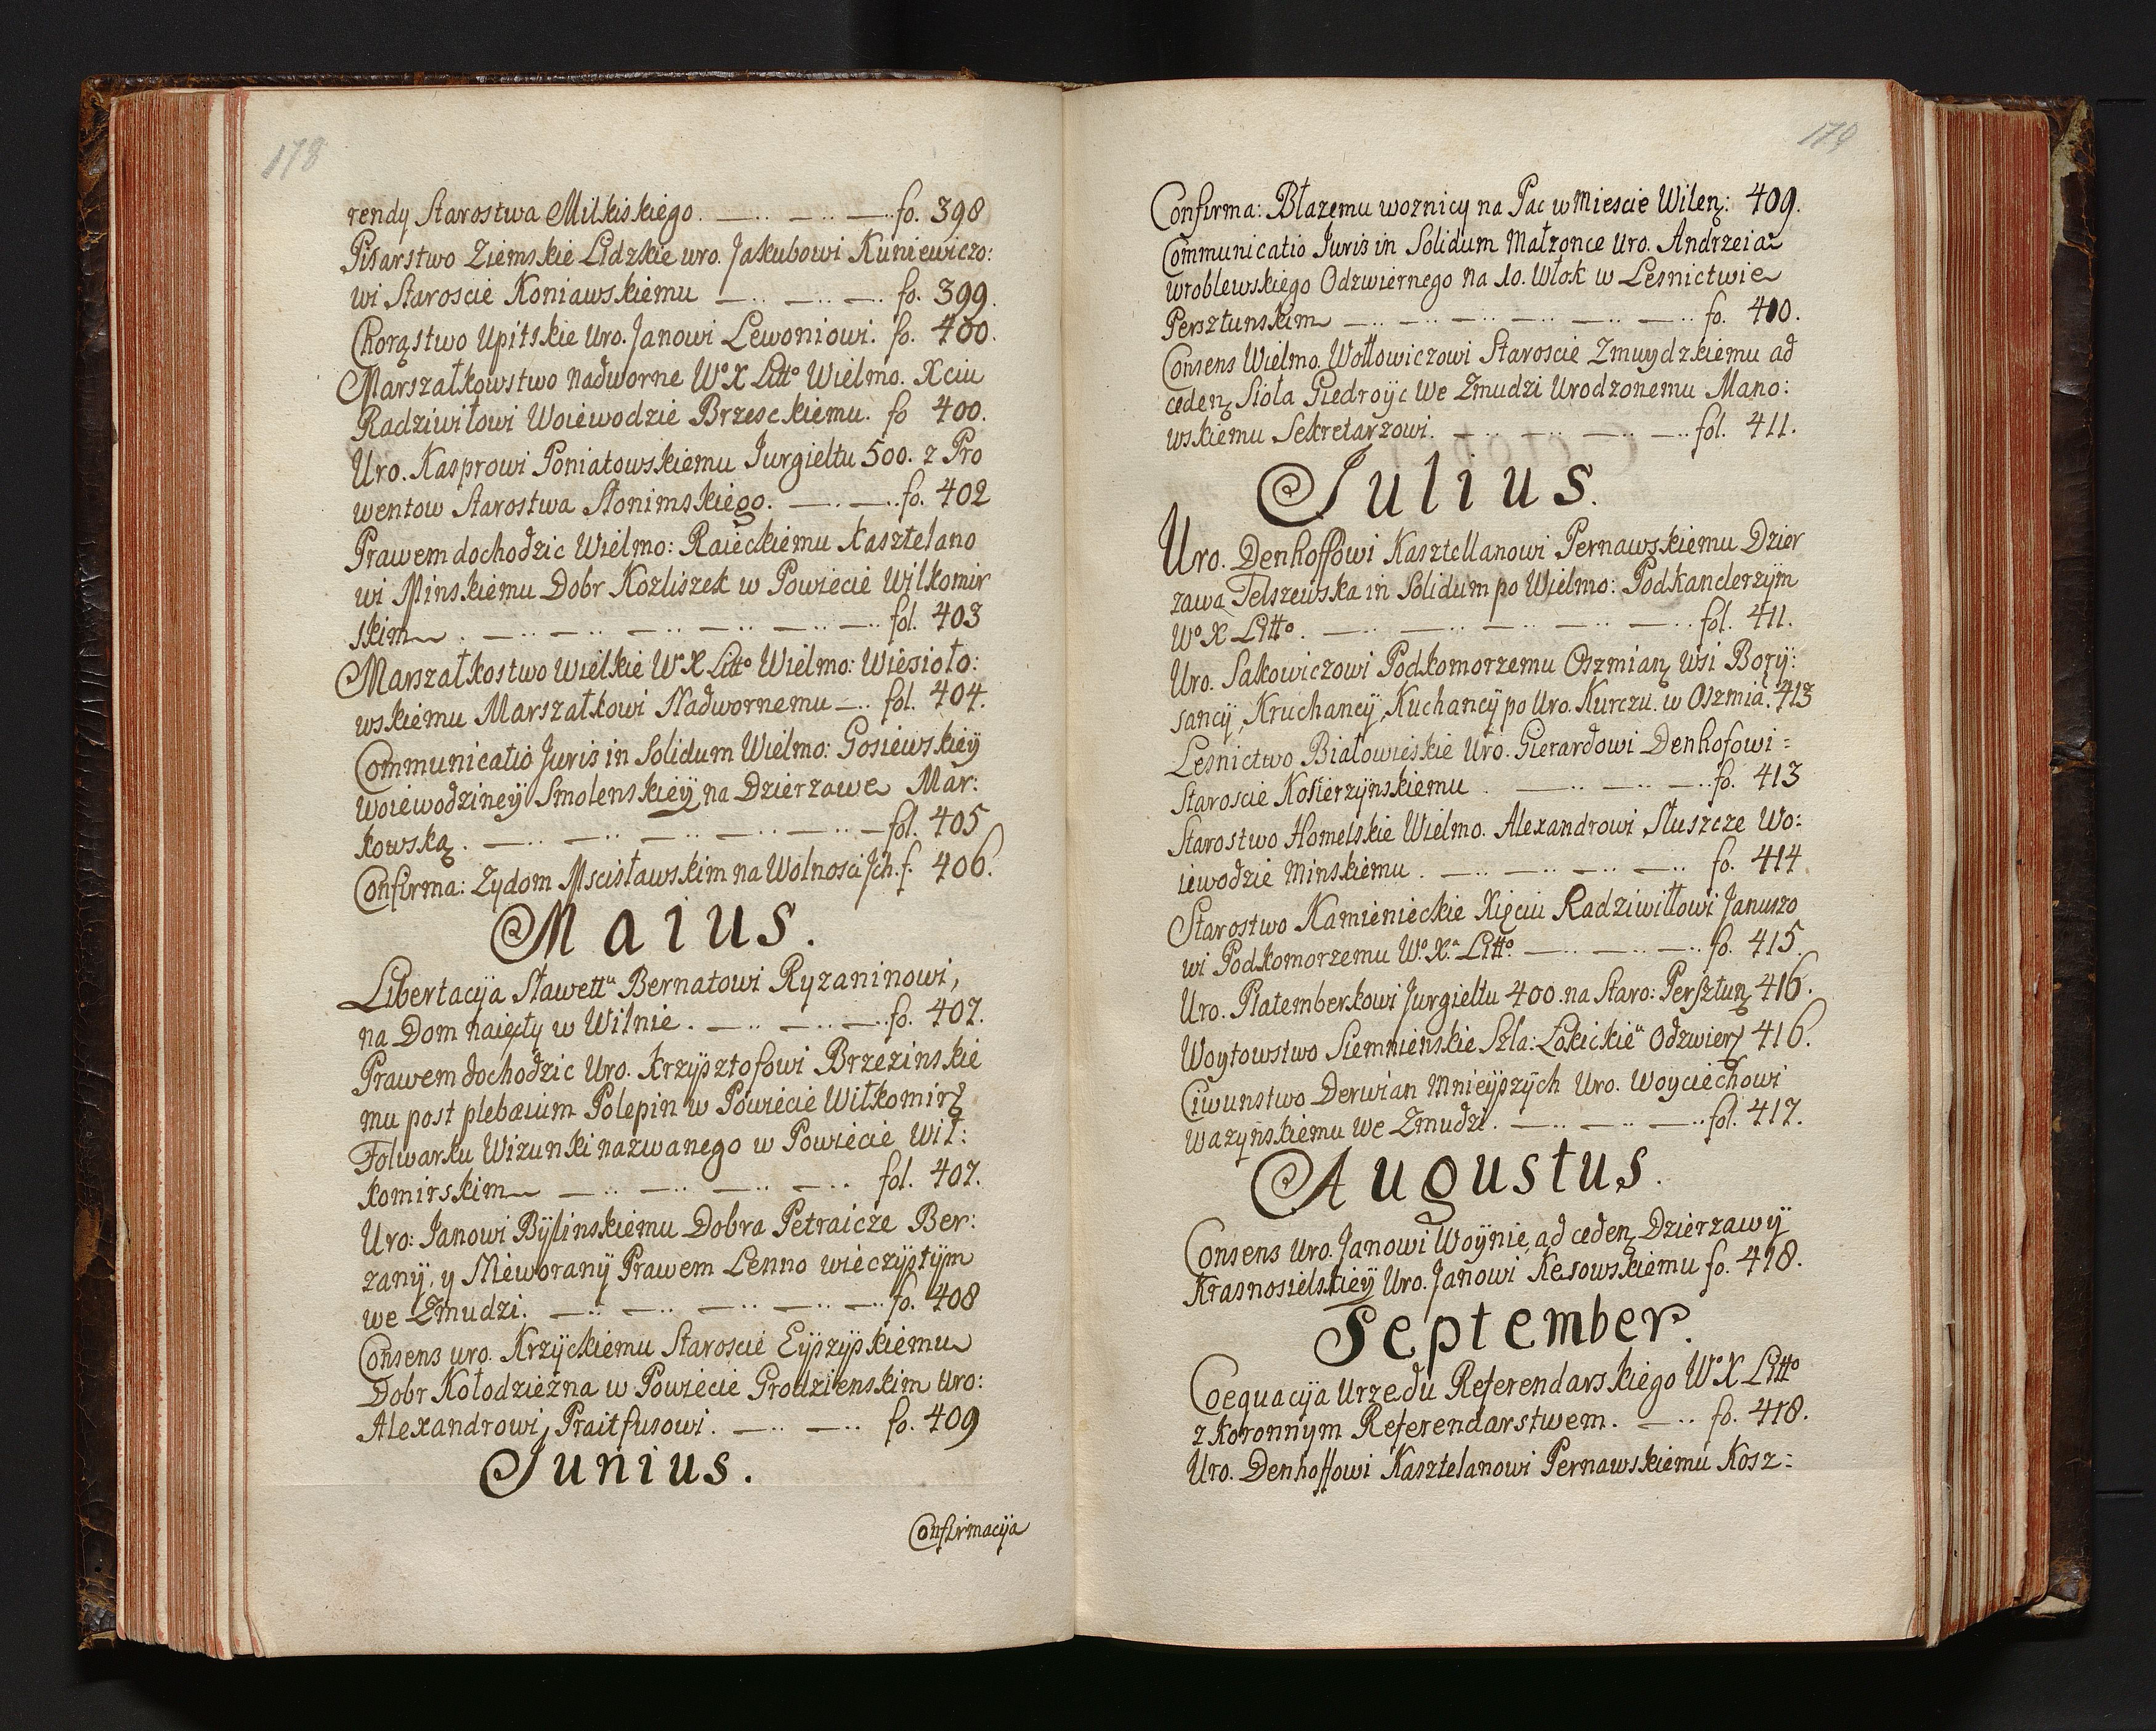 178
rendy Starostwa Milkiskiego. fo. 398
Pisarstwo Ziemskie Lidzkie uro. Jakubowi Kuniewiczo:
wi Staroscie Koniawskiemu fo. 399.
Chorąstwo Upitskie Uro. Janowi Lewoniowi. fo. 400.
Marszałkowstwo nadworne Wº X Littº Wielmo. Xciu
Radziwiłowi Woiewodzie Brzesckiemu. fo 400.
Uro. Kasprowi Poniatowskiemu Jurgieltu 500. z Pro
wentow Starostwa Słonimskiego. fo. 402
Prawem dochodzic Wielmo: Raieckiemu Kasztelano
wi Minskiemu Dobr Kozliszek w Powiecie Wilkomir
skim. fol. 403
Marszałkostwo Wielkie Wº X Littº Wielmo: Wiesioło:
wskiemu Marszałkowi Nadwornemu fol. 404.
Communicatio Juris in Solidum Wielmo: Gosiewskieÿ
Woiewodzineÿ Smolenskieÿ na Dzierzawe Mar:
kowską. fol. 405
Confirma: Zydom Mscisławskim na Wolnosci Jch. f. 406.
Maius.
Libertacÿa Sławettᵘ Bernatowi Ryzaninowi,
na Dom naięty w Wilnie. fo. 407.
Prawem dochodzic Uro. Krzÿsztofowi Brzezinskie
mu post plebæium Polepin w Powiecie Wiłkomirz
Folwarku Wizunki nazwanego w Powiecie Wił:
komirskim fol. 407.
Uro: Janowi Bÿlinskiemu Dobra Petraicze Ber:
zanÿ, y Mieworanÿ Prawem Lenno wieczÿstÿm
we Zmudzi. fo. 408
Consens uro. Krzÿckiemu Staroscie Eÿszÿskiemu
Dobr Kołodziezna w Powiecie Grodzienskim Uro:
Alexandrowi Praitfusowi. fo. 409
Junius.
Confirmacÿa
179
Confirma: Błazemu woznicy na Pac w Miescie Wileń: 409.
Communicatio Juris in Solidum Małzonce Uro. Andrzeia
Wroblewskiego Odzwiernego na 10. Włok w Lesnictwie
Persztunskim fo. 410.
Consens Wielmo. Wołłowiczowi Staroscie Zmuydzkiemu ad
ceden Sioła Giedroÿc We Zmudzi Urodzonemu Mano:
wskiemu Sekretarzowi. fol. 411.
Julius.
Uro. Denhoffowi Kasztellanowi Pernawskiemu Dzier
zawa Telszewska in Solidum po Wielmo: Podkanclerzÿm
Wº X Littº. fol. 411.
Uro. Sakowiczowi Podkomorzemu Oszmian Wsi Borÿ:
sancÿ, Kruchancÿ, Kuchancÿ po Uro. Kurczu. w Oszmia: 413
Lesnictwo Białowieskie Uro. Gierardowi Denhofowi
Staroscie Kosierzÿnskiemu. fo. 413
Starostwo Homelskie Wielmo. Alexandrowi Słuszcze Wo:
iewodzie Minskiemu. fo. 414
Starostwo Kamienieckie Xięciu Radziwiłłowi Januszo
wi Podkomorzemu Wº. Xª. Littº fo. 415.
Uro. Platemberkowi Jurgieltu 400. na Staro: Persztun 416.
Woytowstwo Siemnienskie Szla: Łokickieᵘ Odzwier 416.
Ciwunstwo Derwian Mnieÿszÿch Uro. Woyciechowi
Wazÿnskiemu We Zmudzi. fol. 417.
Augustus.
Consens Uro. Janowi Woÿnie, ad ceden Dzierzawÿ
Krasnosielskieÿ Uro. Janowi Kesowskiemu fo. 418.
September.
Coequacÿa Urzedu Referendarskiego Wº X Littº
z Koronnym Referendarstwem. fo. 418.
Uro. Denhoffowi Kasztelanowi Pernawskiemu Kosz: